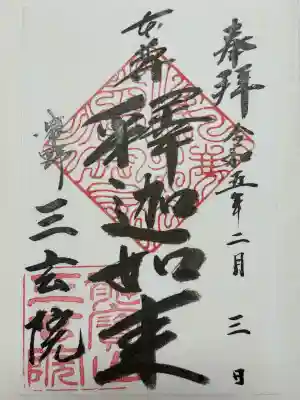 奉拝 令和五年二月三日
本尊
釋迦如来
紫野 三玄院